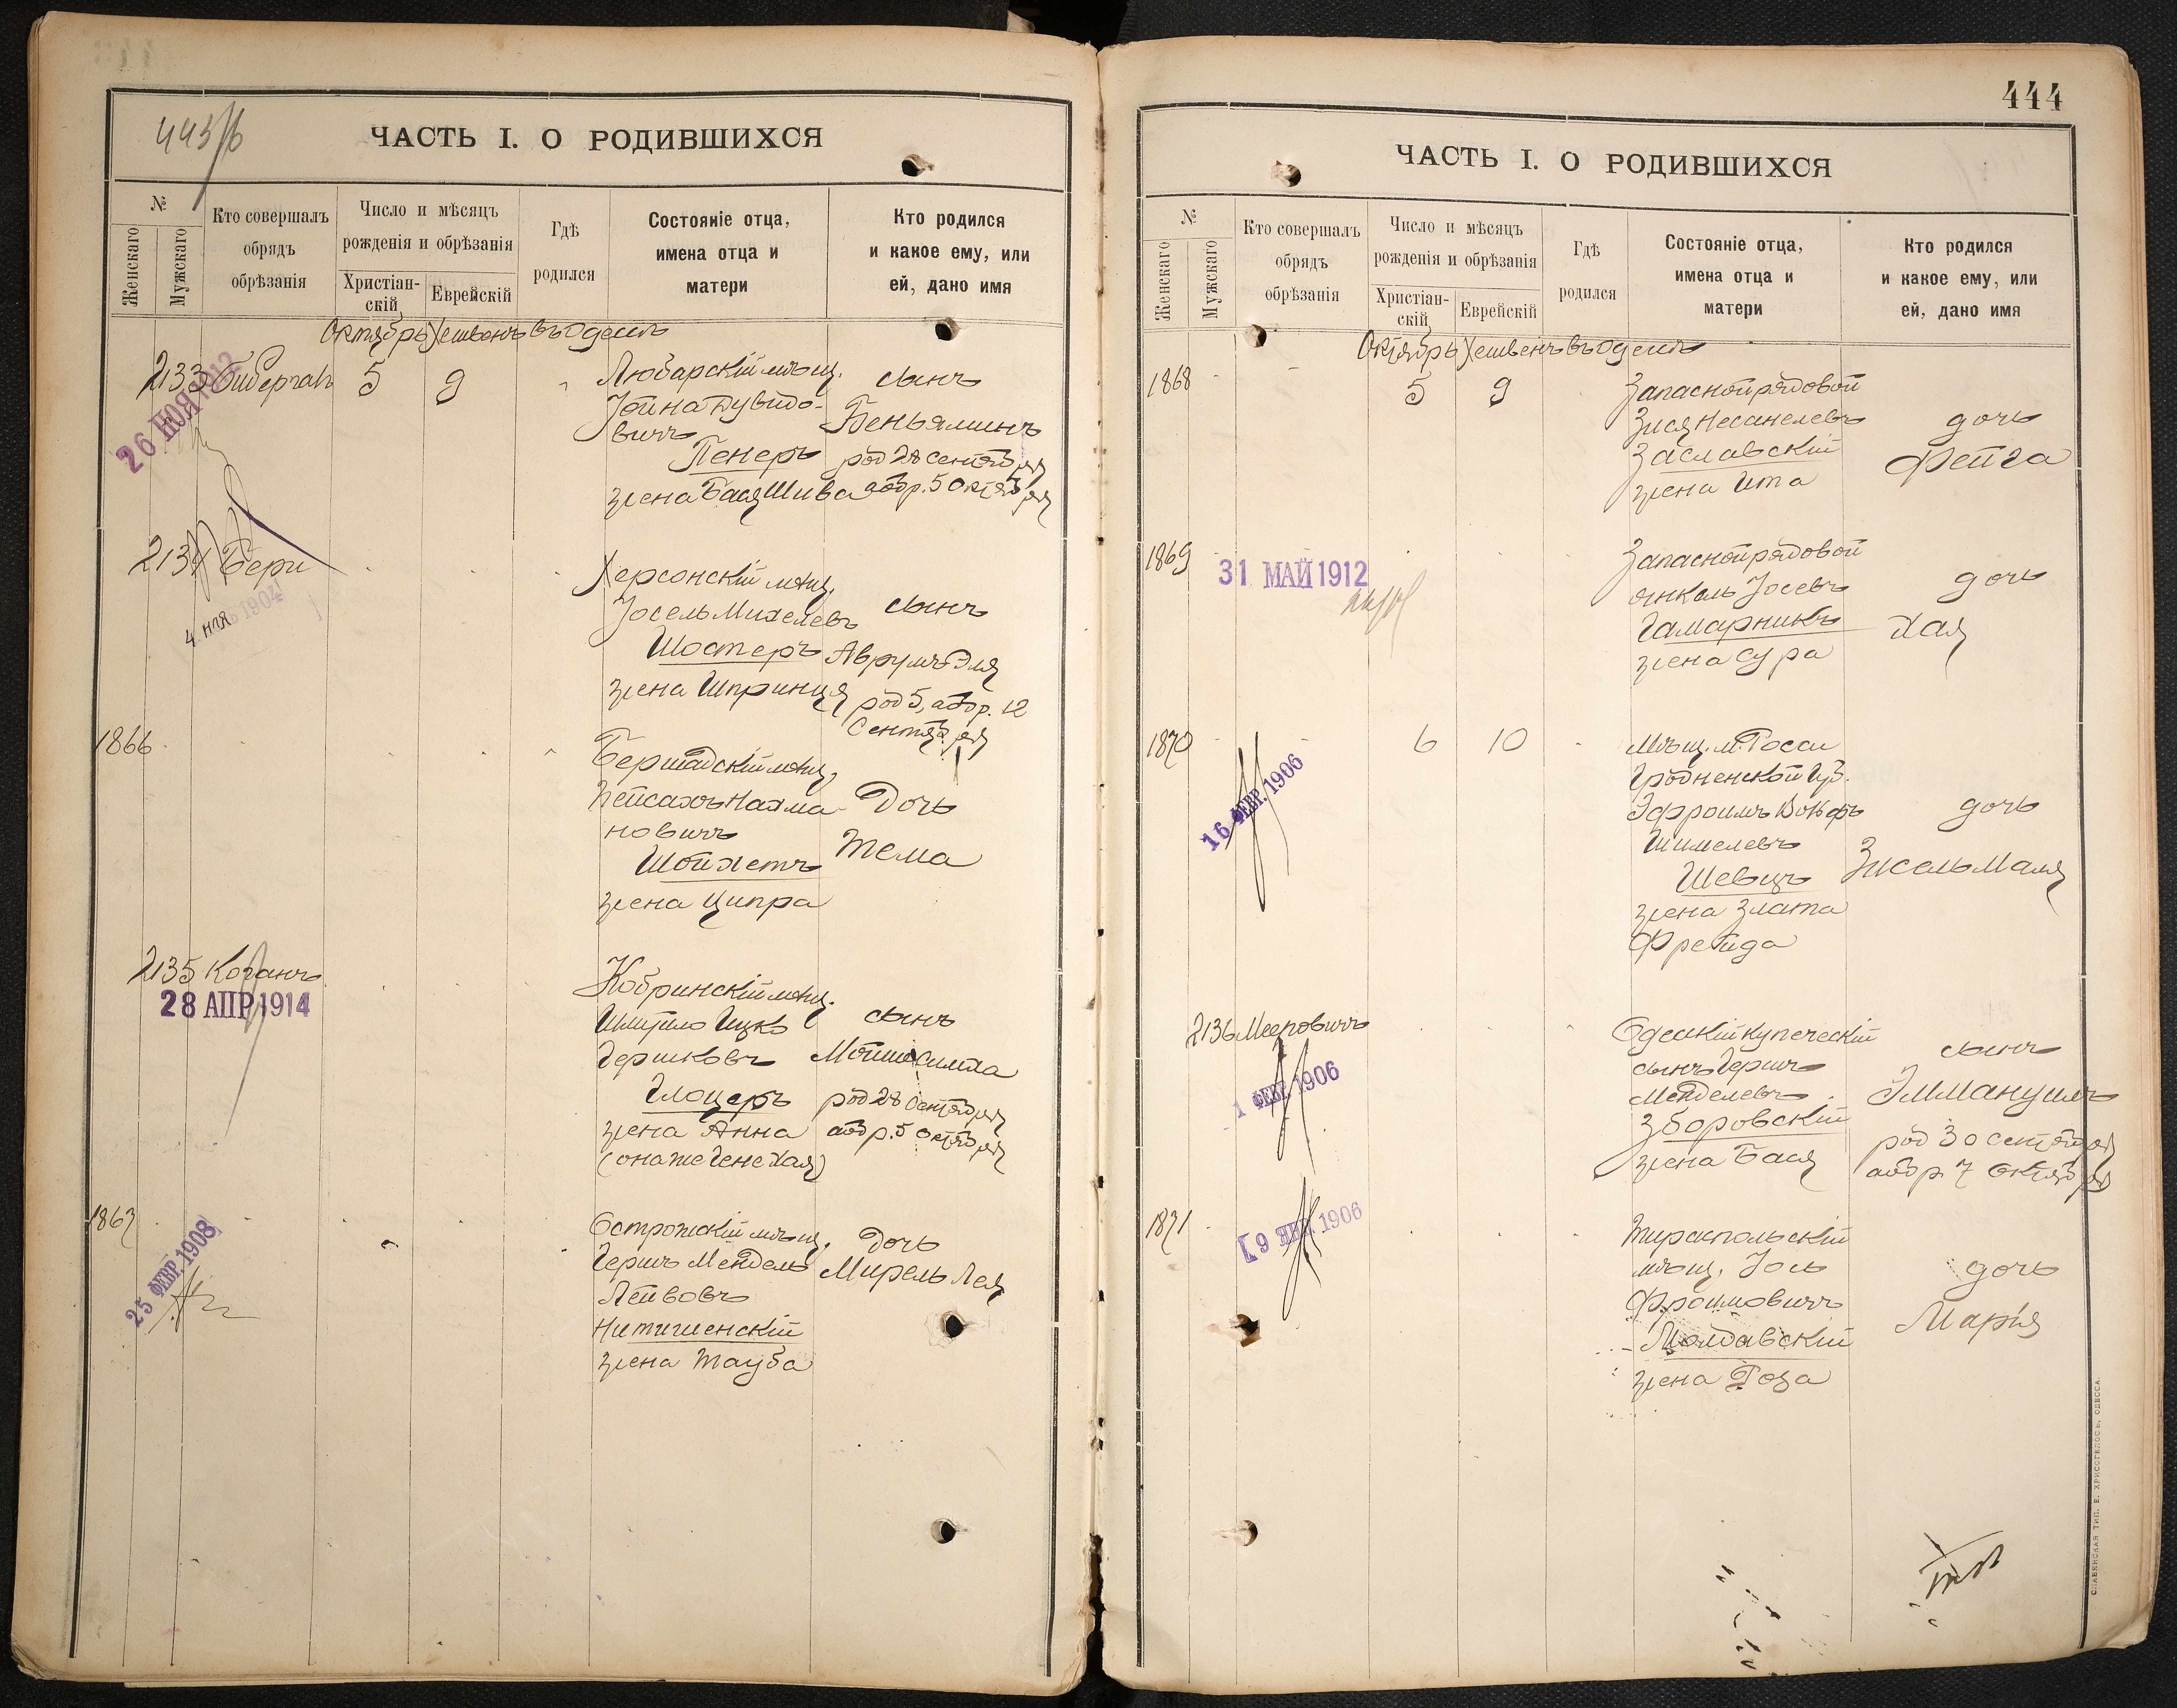 443/б
ЧАСТЬ I. О РОДИВШИХСЯ
№
Женскаго
Мужскаго
Кто совершалъ
обрядъ
обрѣзанія
Число и мѣсяцъ
рожденія и обрѣзанія
Христіан-
скій
Еврейскій
Гдѣ
родился
Состояніе отца,
имена отца и
матери
Кто родился
и какое ему, или
ей, дано имя
Октябрь Хешвенъ въ Одессѣ
2133
5 9
Любарскій мѣщ.
Іойна Дувидо-
вичъ
Пекеръ
жена Бася Шива
сынъ
Беньяминъ
род 28 сентября
обр. 5 октября
26 ІЮЯ 1912
2134 Бери
Херсонскій мѣщ.
Іосель Михелевъ
Шостеръ
жена Шпринця
сынъ
Аврумъ Эля
род 5, а обр. 12
Сентября
4 1904
1866
Бершадскій мѣщ.
Пейсахъ Нахма-
новичъ
Шойхетъ
жена Ципра
Дочь
Тема
2135 Коганъ
28 АПР 1914
Кобринскій мѣщ.
Шмуйло Ицко
Гершковъ
Глоцеръ
жена Анна
(она же Гене Хая)
сынъ
Мойше Симха
род 28 Сентября
а обр. 5 октября
1867
25 ФЕВР. 1908
Острожскій мѣщ.
Гершъ Мендель
Лейвовъ
Нитишенскій
жена Тауба
Дочь
Мирель Лея
444
ЧАСТЬ I. О РОДИВШИХСЯ
№
Женскаго
Мужскаго
Кто совершалъ
обрядъ
обрѣзанія
Число и мѣсяцъ
рожденія и обрѣзанія
Христіан-
скій
Еврейскій
Гдѣ
родился
Состояніе отца,
имена отца и
матери
Кто родился
и какое ему, или
ей, дано имя
Октябрь Хешвенъ въ Одессѣ
1868
5 9
Запасной рядовой
Зися Несанелевъ
Заславскій
жена Ита
дочь
Фейга
1869
31 МАЙ 1912
Запасной рядовой
Янкель Іосевъ
Гамарникъ
жена Сура
дочь
Хая
1870
6 10
16 ФЕВР. 1906
Мѣщ. м. Росси
Гродненской Губ.
Эфроимъ Вольфъ
Шимелевъ
Шевцъ
жена Злата
Фрейда
дочь
Зисель Маля
2136 Мееровичъ
1 ФЕВР. 1906
Одесскій купеческій
сынъ Гершъ
Менделевъ
Зборовскій
жена Бася
сынъ
Эммануилъ
род 30 сентября
а обр 7 октября
1871
9 ЯНВ. 1906
Тираспольскій
мѣщ. Іось
Фроимовичъ
Молдавскій
жена Роза
дочь
Марія
СЛАВЯНСКАЯ ТИП. Е. ХРИСОГЕЛОСЪ, ОДЕССА.